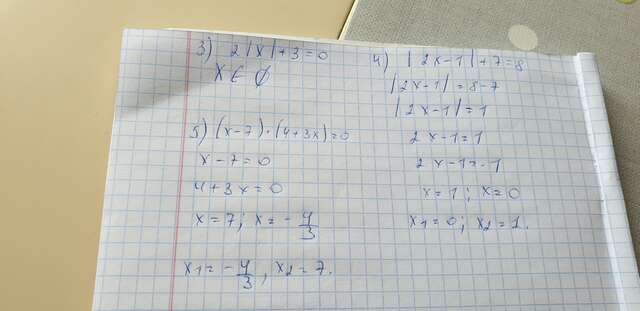 3) 2|x|+3=0
x ∈ ∅
4) |2x-1|+7=8
|2x-1|=8-7
|2x-1|=1
2x-1=1
2x-1=-1
x=1; x=0
x1=0; x2=1.
5) (x-7)·(4+3x)=0
x-7=0
4+3x=0
x=7; x=-4/3
x1=-4/3, x2=7.